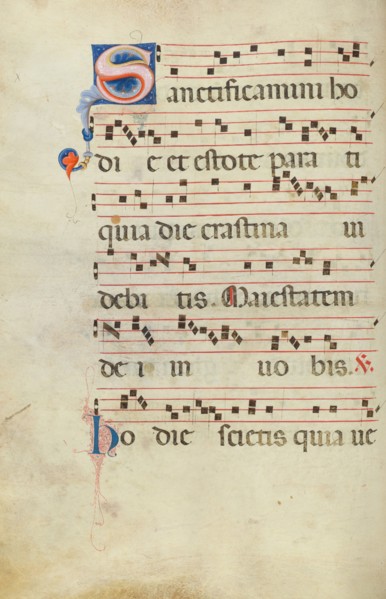 Sanctificamini ho
di e et estote para ti
quia die crastina ui
debi tis. Maiestatem
de i in uo bis. ℣.
Ho die scietis quia ue